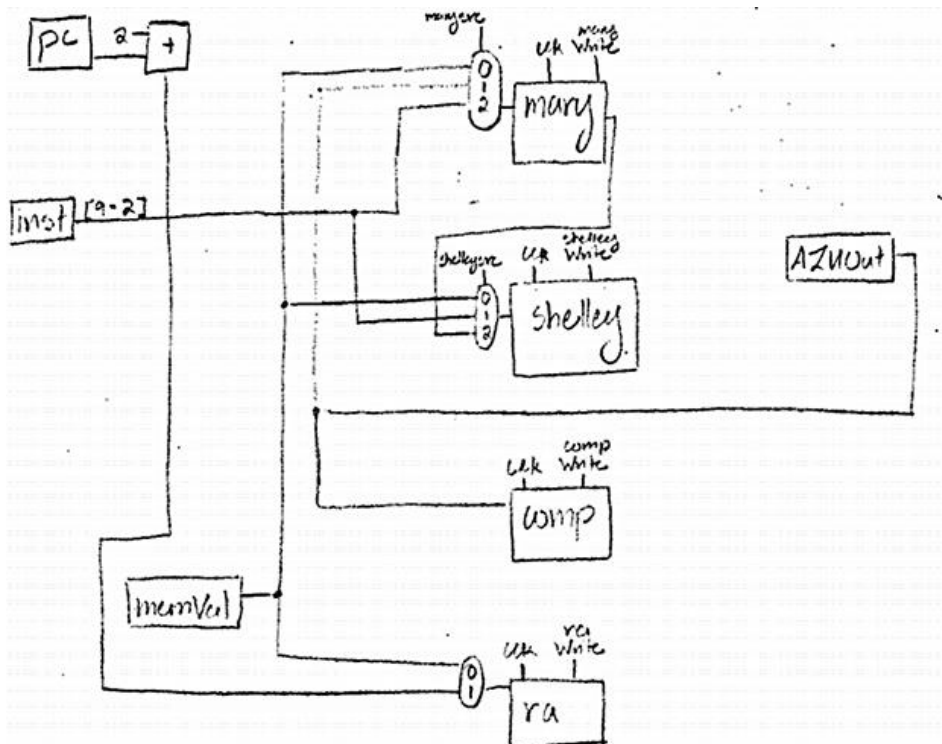 PC
2
+
0
1
2
clk
mary
write
mary
inst
[9-2]
shelleysrc
0
1
2
clk
shelley
write
shelley
ALUOut
clk
comp
write
comp
memVal
0
1
clk
ra
write
ra